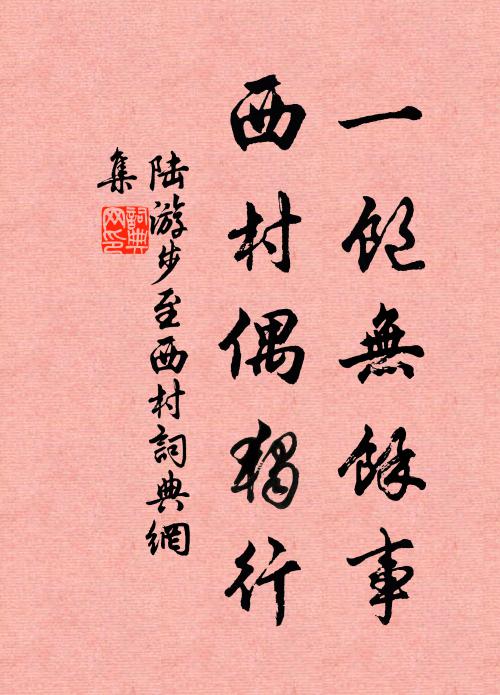 一飽無餘事
西村偶獨行
陸游步至西村詞典網
集
詞典
网印